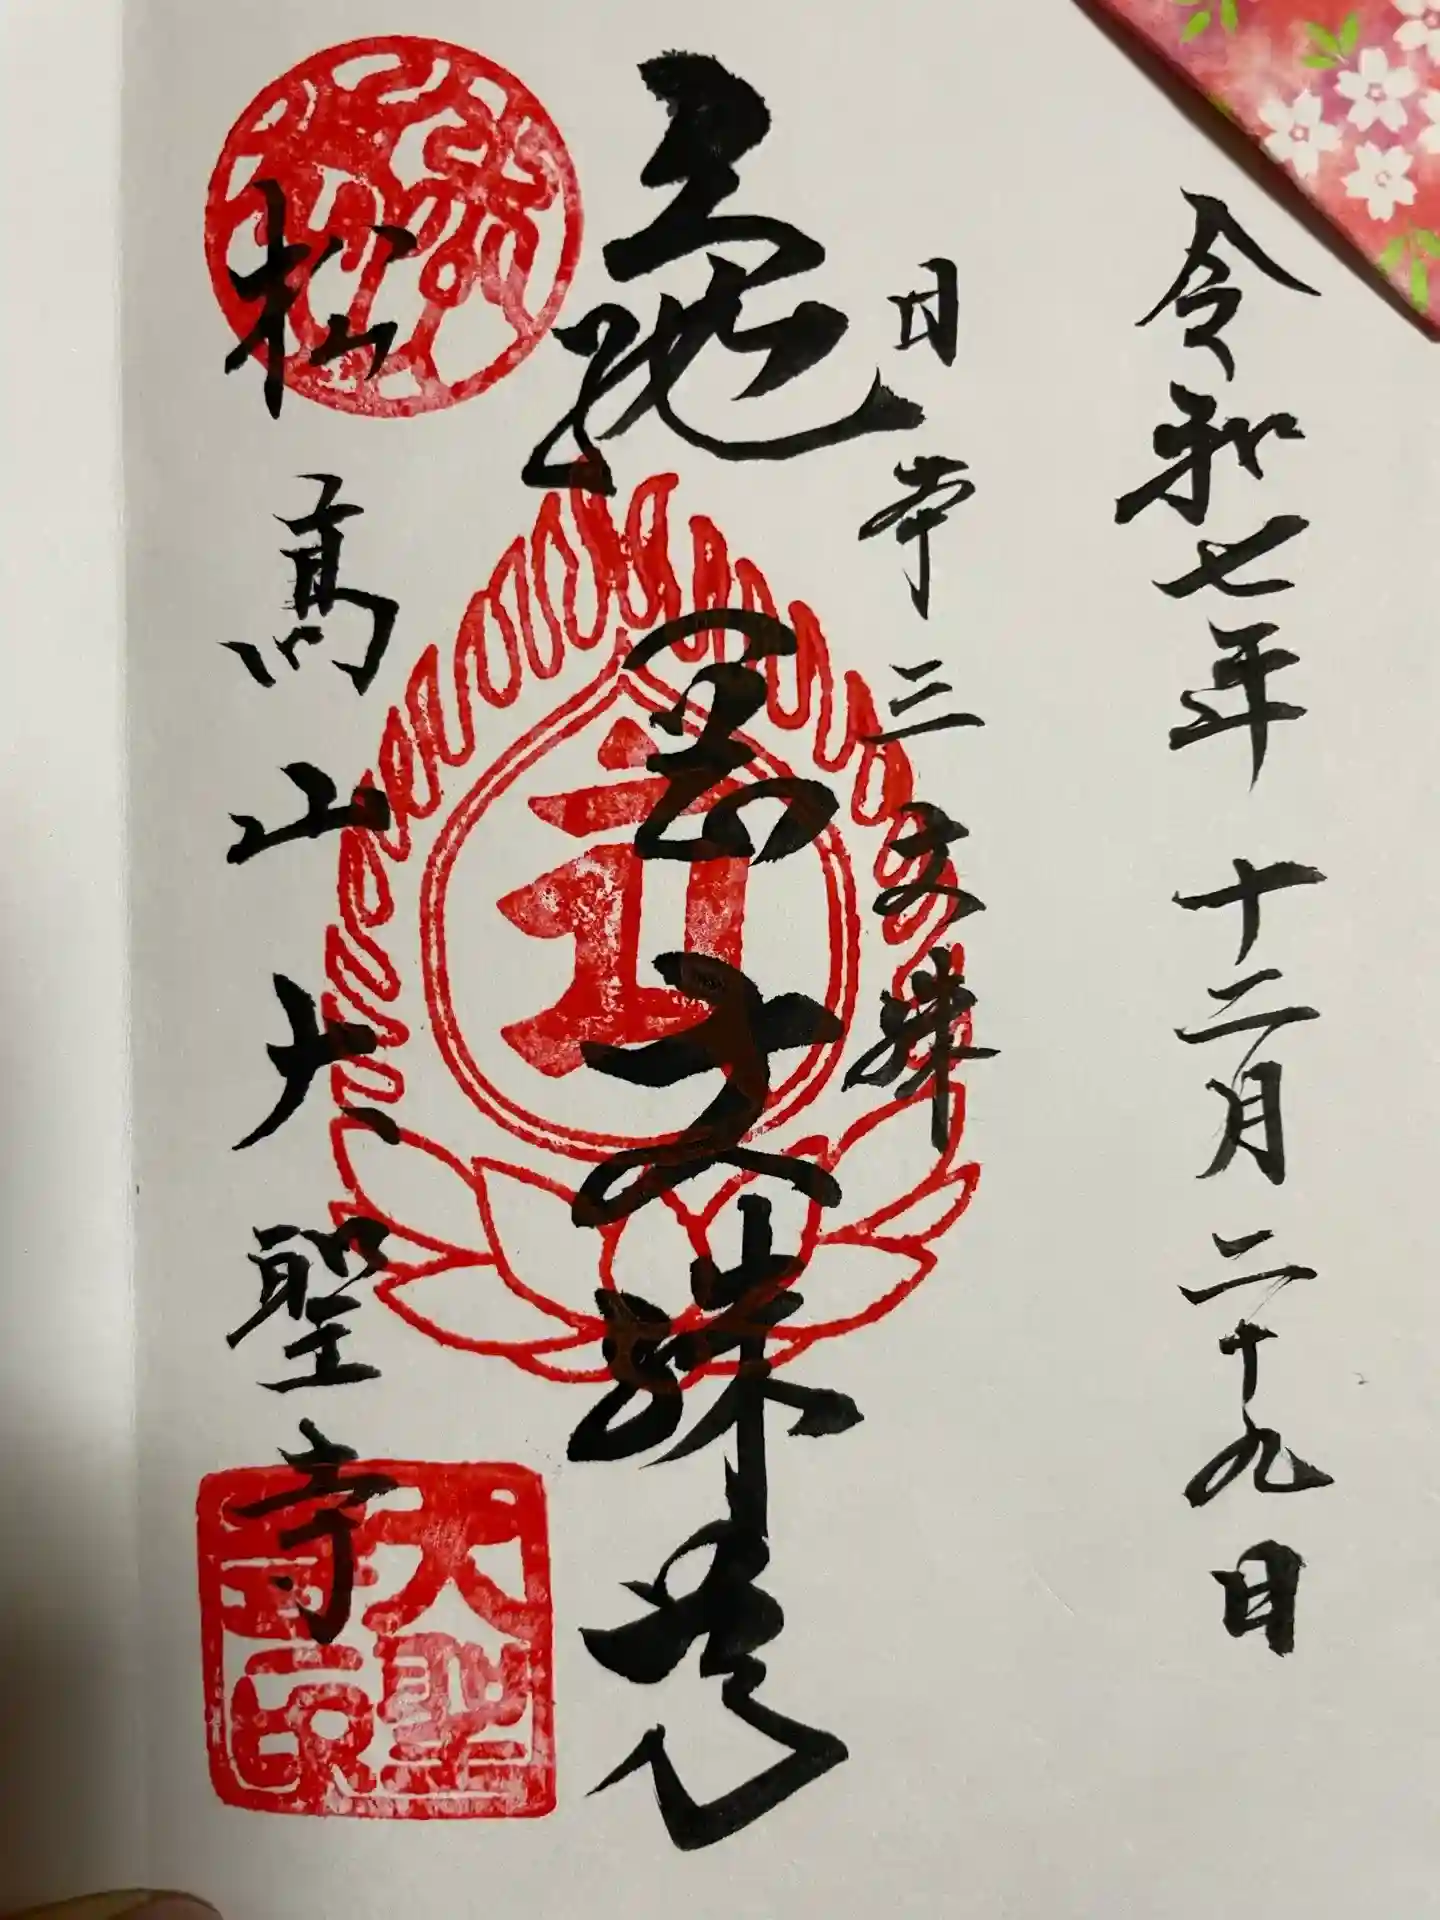 令和七年 十二月 二十九日
日本三文殊
亀岡文殊尊
松高山大聖寺
大聖寺印